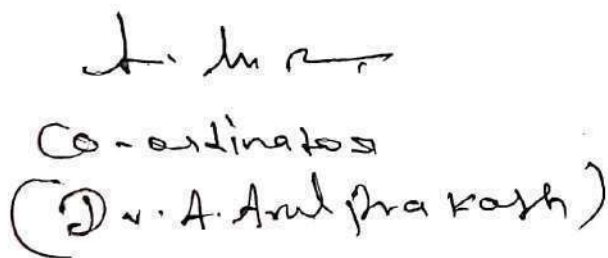 Co-ordinator
(Dr. A. Arul Prakash)